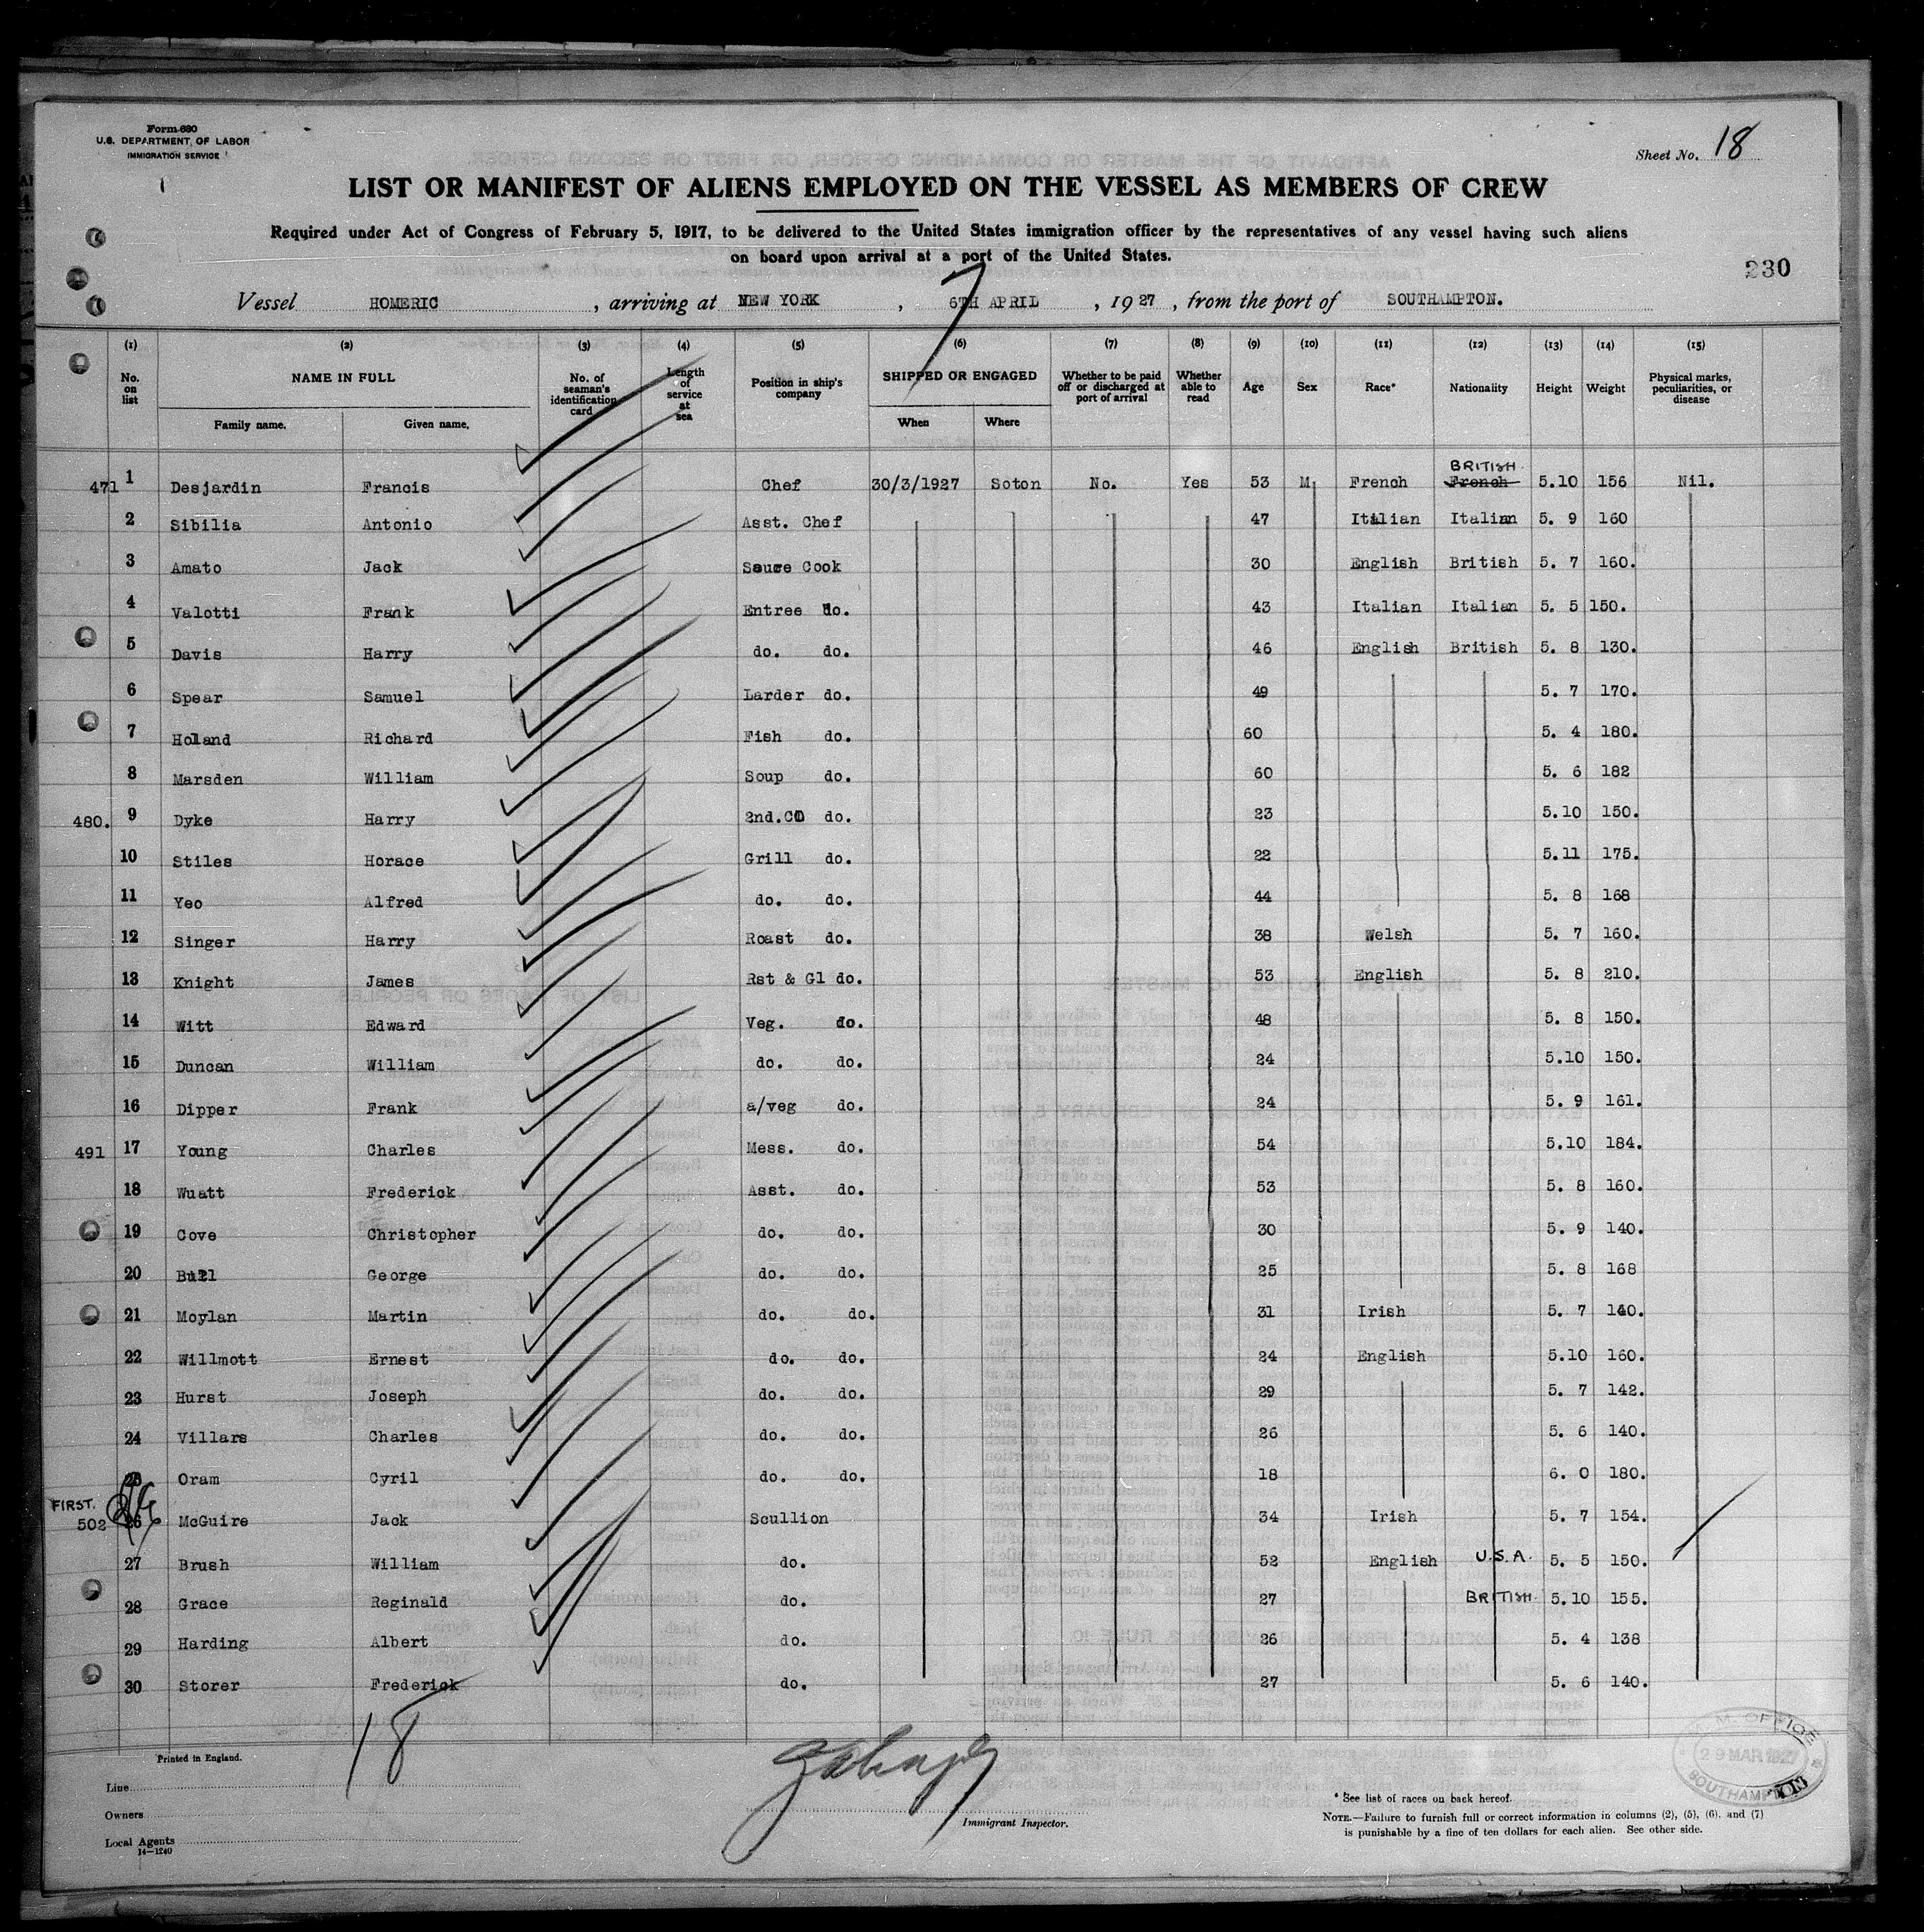 Form 680
U.S. DEPARTMENT OF LABOR
IMMIGRATION SERVICE
Sheet No. 18
LIST OR MANIFEST OF ALIENS EMPLOYED ON THE VESSEL AS MEMBERS OF CREW
Required under Act of Congress of February 5, 1917, to be delivered to the United States immigration officer by the representatives of any vessel having such aliens
on board upon arrival at a port of the United States.
230
7
Vessel HOMERIC, arriving at NEW YORK, 6TH APRIL, 1927, from the port of SOUTHAMPTON.
(1) (2) (3) (4) (5) (6) (7) (8) (9) (10) (11) (12) (13) (14) (15)
No. on list NAME IN FULL Family name. Given name. No. of seaman's identification card Length of service at sea Position in ship's company SHIPPED OR ENGAGED When Where Whether to be paid off or discharged at port of arrival Whether able to read Age Sex Race* Nationality Height Weight Physical marks, peculiarities, or disease
BRITISH
471 1 Desjardin Francis Chef 30/3/1927 Soton No. Yes 53 M. French French 5.10 156 Nil.
2 Sibilia Antonio Asst. Chef 47 Italian Italian 5. 9 160
3 Amato Jack Sauce Cook 30 English British 5. 7 160.
4 Valotti Frank Entree do. 43 Italian Italian 5. 5 150.
5 Davis Harry do. do. 46 English British 5. 8 130.
6 Spear Samuel Larder do. 49 5. 7 170.
7 Holand Richard Fish do. 60 5. 4 180.
8 Marsden William Soup do. 60 5. 6 182
480. 9 Dyke Harry 2nd. do. 23 5.10 150.
10 Stiles Horace Grill do. 22 5.11 175.
11 Yeo Alfred do. do. 44 5. 8 168
12 Singer Harry Roast do. 38 Welsh 5. 7 160.
13 Knight James Rst & Gl do. 53 English 5. 8 210.
14 Witt Edward Veg. do. 48 5. 8 150.
15 Duncan William do. do. 24 5.10 150.
16 Dipper Frank a/veg do. 24 5. 9 161.
491 17 Young Charles Mess. do. 54 5.10 184.
18 Wuatt Frederick Asst. do. 53 5. 8 160.
19 Cove Christopher do. do. 30 5. 9 140.
20 George do. do. 25 5. 8 168
21 Moylan Martin do. do. 31 Irish 5. 7 140.
22 Willmott Ernest do. do. 24 English 5.10 160.
23 Hurst Joseph do. do. 29 5. 7 142.
24 Villars Charles do. do. 26 5. 6 140.
25 Oram Cyril do. do. 18 6. 0 180.
FIRST.
502 26 McGuire Jack Scullion 34 Irish 5. 7 154.
27 Brush William do. 52 English U.S.A. 5. 5 150.
28 Grace Reginald do. 27 BRITISH. 5.10 155.
29 Harding Albert do. 26 5. 4 138
30 Storer Frederick do. 27 5. 6 140.
18
Printed in England.
Line
Owners
Local Agents
14—1240
Immigrant Inspector.
* See list of races on back hereof.
NOTE.—Failure to furnish full or correct information in columns (2), (5), (6), and (7)
is punishable by a fine of ten dollars for each alien. See other side.
M.M. OFFICE
29 MAR 1927
SOUTHAMPTON